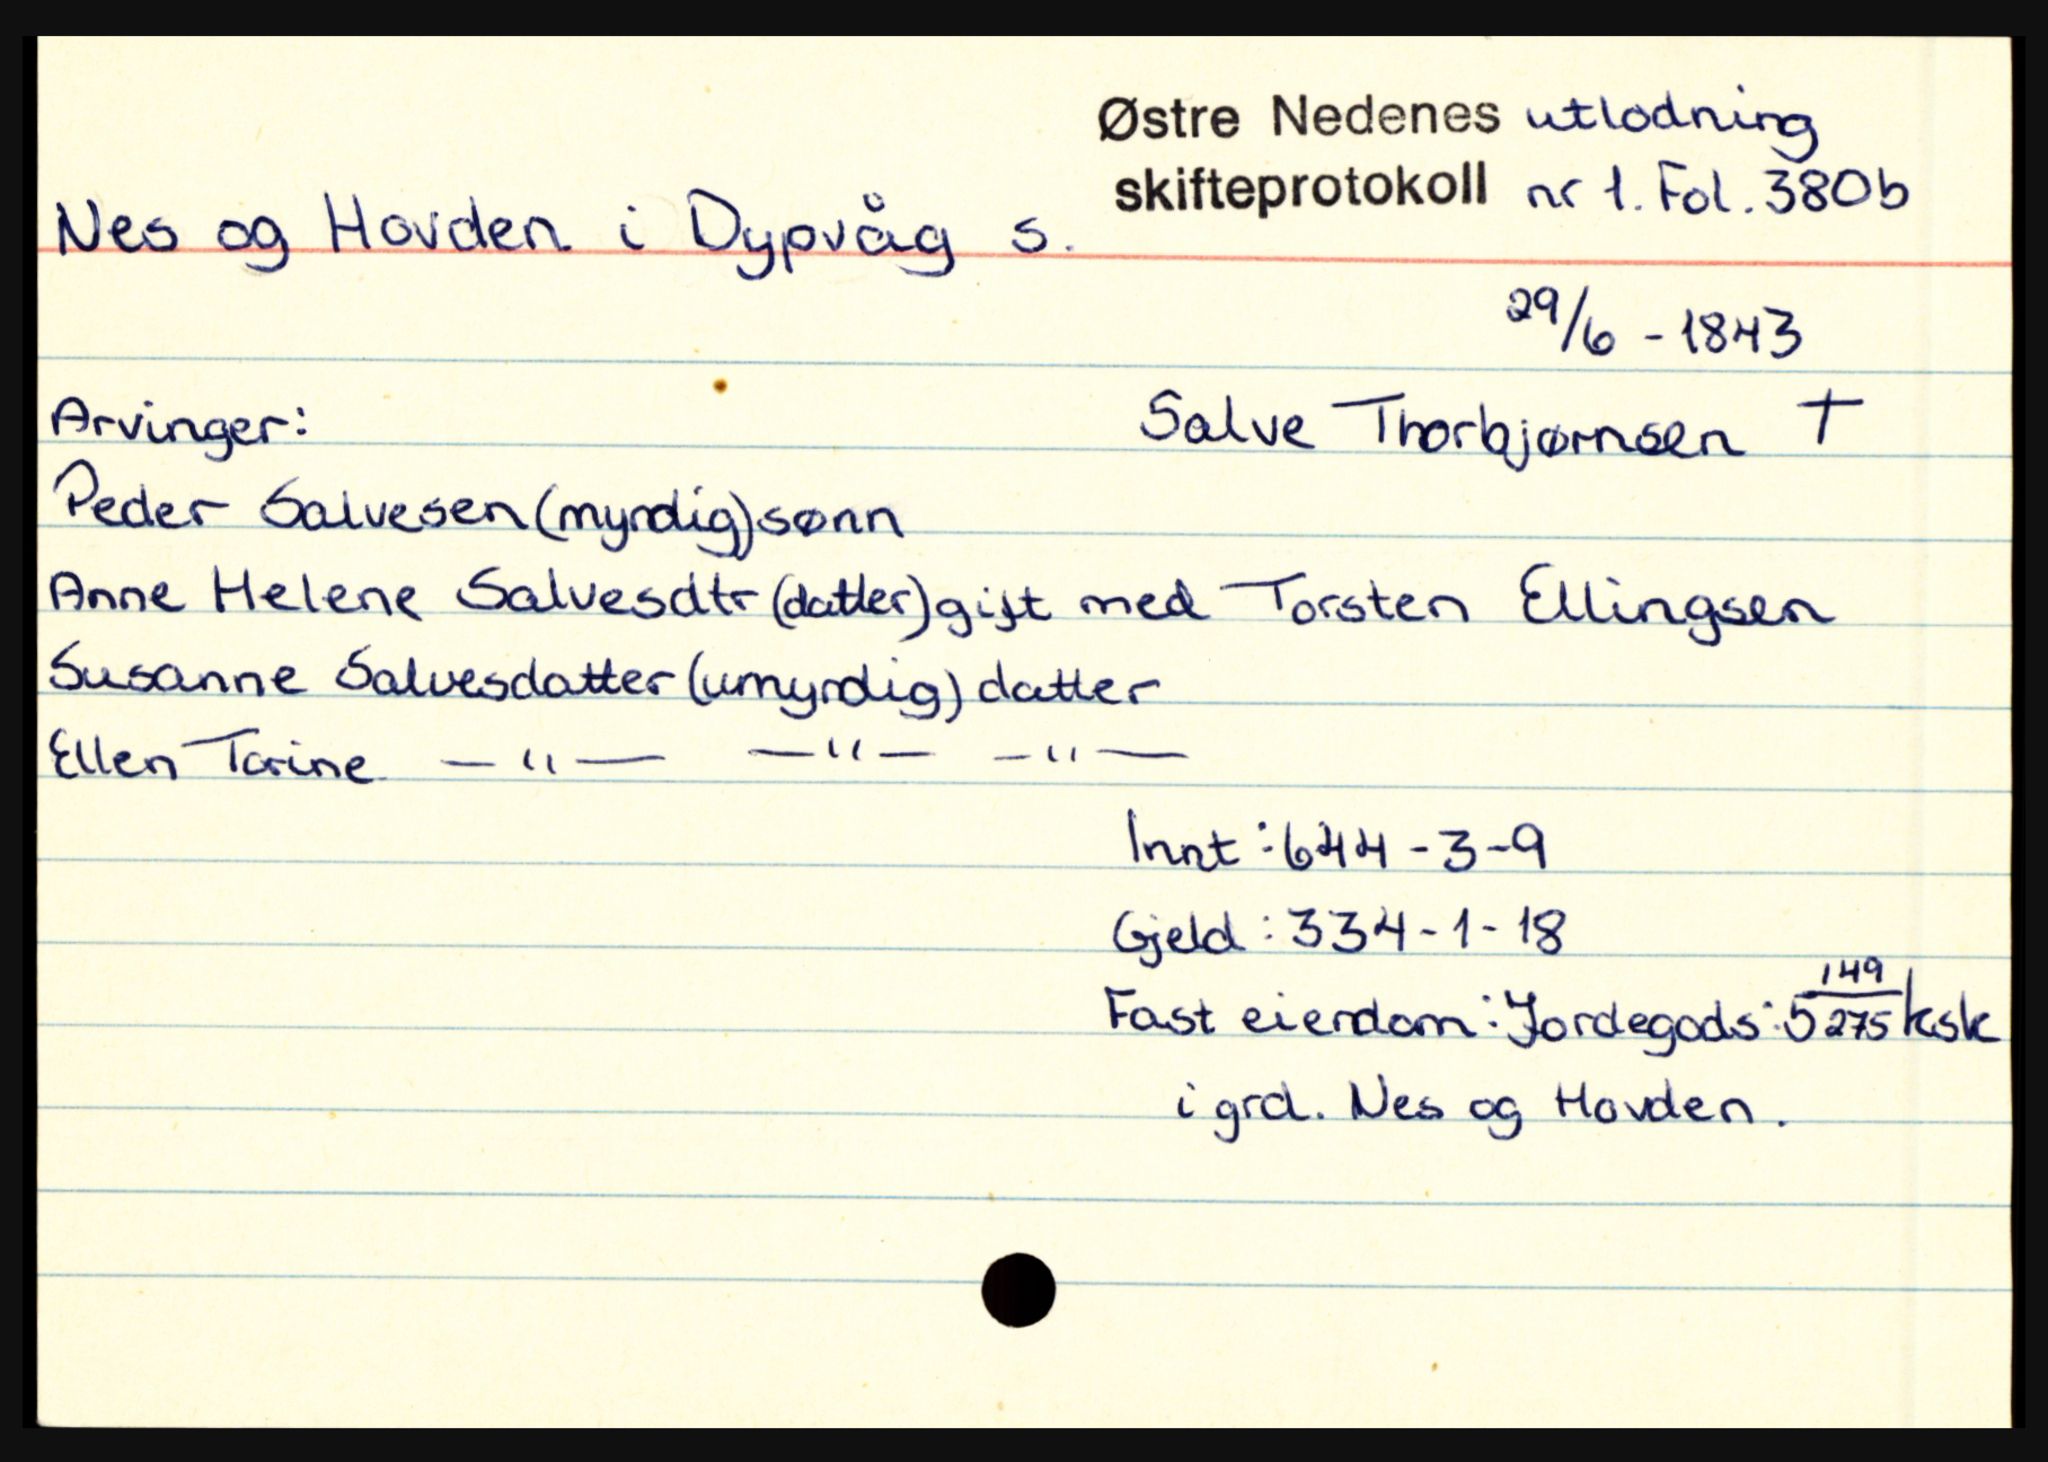 Østre Nedenes utlodning
skifteprotokoll nr 1. Fol. 380b
Nes og Hovden i Dypvåg s.
29/6 - 1843
Arvinger: Salve Thorbjørnsen †
Peder Salvesen (myndig) sønn
Anne Helene Salvesdtr (datter) gift med Torsten Ellingsen
Susanne Salvesdatter (umyndig) datter
Ellen Tarine —"— —"— —"—
Innt: 644 - 3 - 9
Gjeld: 334 - 1 - 18
Fast eiendom: Jordegods: 5 149/275 ksk
i grd. Nes og Hovden.